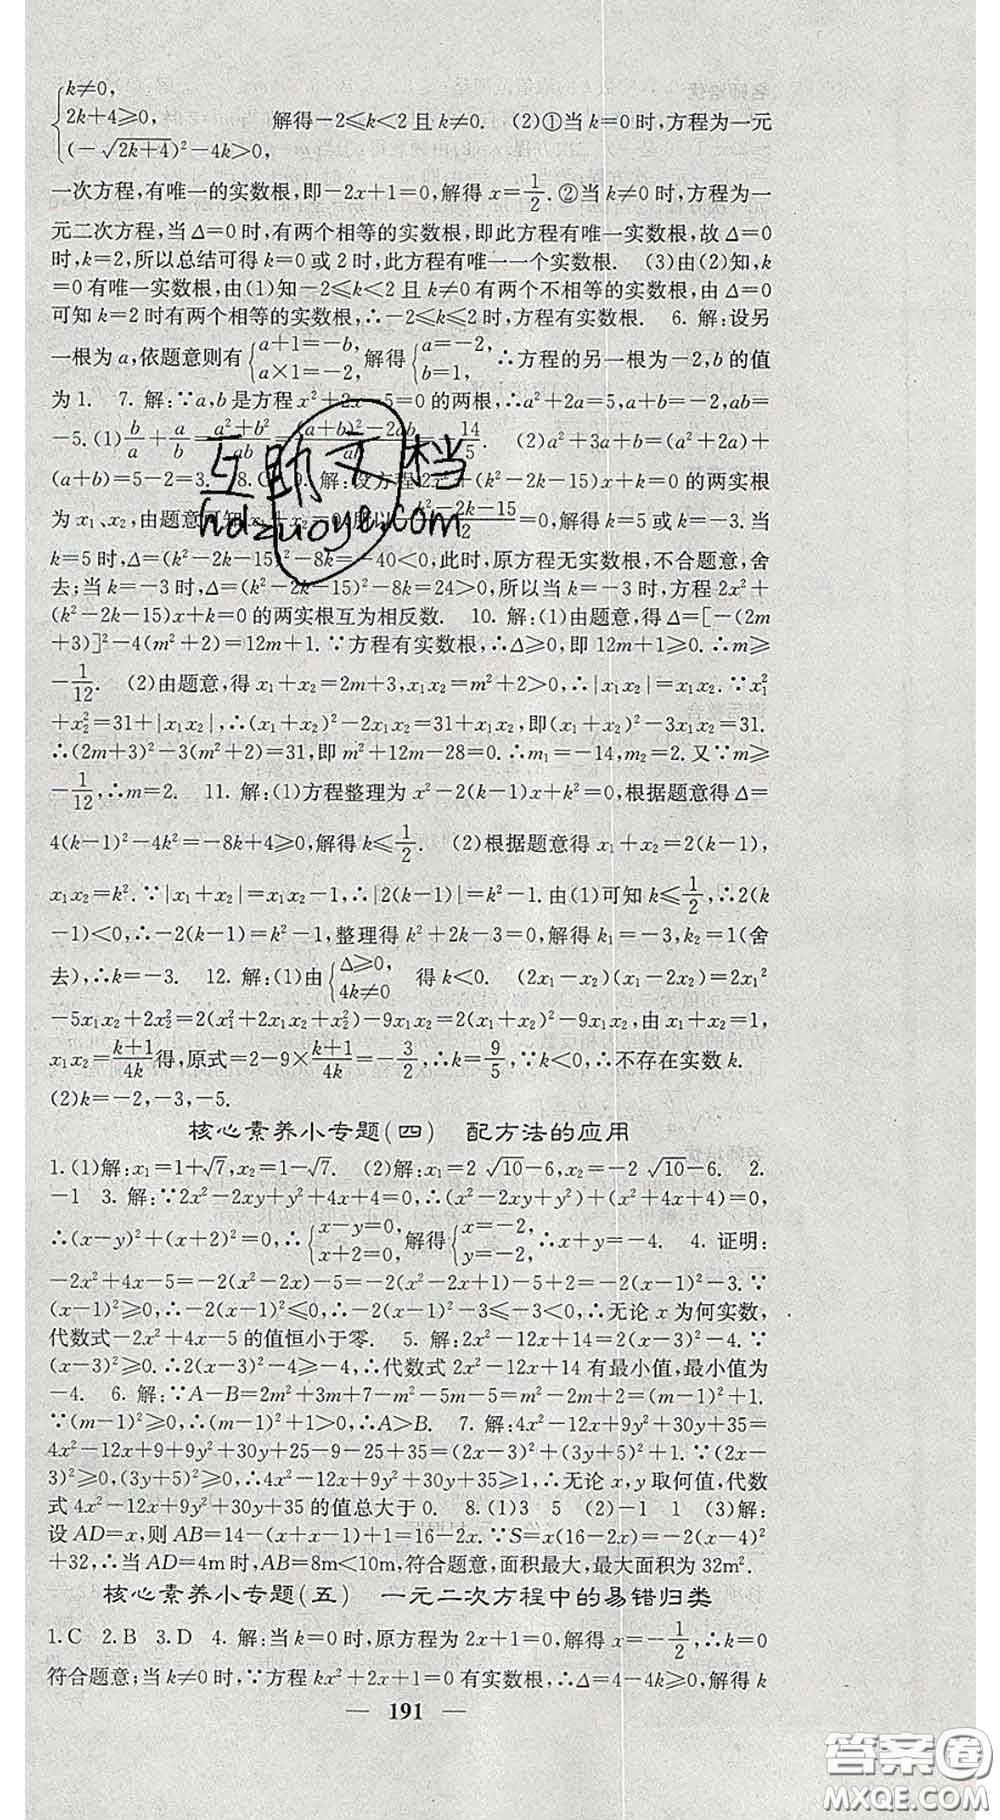 {k≠0,
2k+4≥0, 解得-2≤k<2且k≠0. (2)①当k=0时,方程为一元
(-√(2k+4))²-4k>0,
一次方程,有唯一的实数根,即-2x+1=0,解得x=1/2.②当k≠0时,方程为一
元二次方程,当Δ=0时,有两个相等的实数根,即此方程有唯一实数根,故Δ=0
时,k=2,所以总结可得k=0或2时,此方程有唯一一个实数根. (3)由(2)知,k
=0有唯一实数根,由(1)知-2≤k<2且k≠0有两个不相等的实数根,由Δ=0
可知k=2时有两个相等的实数根,∴-2≤k≤2时,方程有实数根. 6. 解:设另
一根为a,依题意则有{a+1=-b, a×1=-2,解得{a=-2, b=1,∴方程的另一根为-2,b的值
为1. 7. 解:∵a,b是方程x²+2x-5=0的两根,∴a²+2a=5,a+b=-2,ab=
-5.(1)b/a+a/b=(a²+b²)/ab=((a+b)²-2ab)/ab=-14/5. (2)a²+3a+b=(a²+2a)+
(a+b)=5-2=3. 8.C 9. 解:设方程2x²+(k²-2k-15)x+k=0的两实根
为x₁、x₂,由题意可知x₁+x₂=0,所以-(k²-2k-15)/2=0,解得k=5或k=-3.当
k=5时,Δ=(k²-2k-15)²-8k=-40<0,此时,原方程无实数根,不合题意,舍
去;当k=-3时,Δ=(k²-2k-15)²-8k=24>0,所以当k=-3时,方程2x²+
(k²-2k-15)x+k=0的两实根互为相反数. 10. 解:(1)由题意,得Δ=[-(2m
+3)]²-4(m²+2)=12m+1.∵方程有实数根,∴Δ≥0,即12m+1≥0.∴m≥
-1/12. (2)由题意,得x₁+x₂=2m+3,x₁x₂=m²+2>0,∴|x₁x₂|=x₁x₂.∵x₁²
+x₂²=31+|x₁x₂|,∴(x₁+x₂)²-2x₁x₂=31+x₁x₂,即(x₁+x₂)²-3x₁x₂=31.
∴(2m+3)²-3(m²+2)=31,即m²+12m-28=0.∴m₁=-14,m₂=2.又∵m≥
-1/12,∴m=2. 11. 解:(1)方程整理为x²-2(k-1)x+k²=0,根据题意得Δ=
4(k-1)²-4k²=-8k+4≥0,解得k≤1/2. (2)根据题意得x₁+x₂=2(k-1),
x₁x₂=k².∵|x₁+x₂|=x₁x₂-1,∴|2(k-1)|=k²-1.由(1)可知k≤1/2,∴2(k
-1)<0,∴-2(k-1)=k²-1,整理得k²+2k-3=0,解得k₁=-3,k₂=1(舍
去),∴k=-3. 12. 解:(1)由{Δ≥0, 4k≠0 得k<0. (2x₁-x₂)(x₁-2x₂)=2x₁²
-5x₁x₂+2x₂²=2(x₁²+2x₁x₂+x₂²)-9x₁x₂=2(x₁+x₂)²-9x₁x₂,由x₁+x₂=1,
x₁x₂=(k+1)/4k得,原式=2-9×(k+1)/4k=-3/2,∴k=9/5,∵k<0,∴不存在实数k.
(2)k=-2,-3,-5.
核心素养小专题(四) 配方法的应用
1.(1)解:x₁=1+√7,x₂=1-√7. (2)解:x₁=2√10-6,x₂=-2√10-6. 2.
-1 3. 解:∵2x²-2xy+y²+4x+4=0,∴(x²-2xy+y²)+(x²+4x+4)=0,
∴(x-y)²+(x+2)²=0,∴{x-y=0, x+2=0,解得{x=-2, y=-2,∴x+y=-4. 4. 证明:
-2x²+4x-5=-2(x²-2x)-5=-2(x²-2x+1)-5+2=-2(x-1)²-3.∵
(x-1)²≥0,∴-2(x-1)²≤0,∴-2(x-1)²-3≤-3<0,∴无论x为何实数,
代数式-2x²+4x-5的值恒小于零. 5. 解:2x²-12x+14=2(x-3)²-4.∵
(x-3)²≥0.∴2(x-3)²-4≥-4,∴代数式2x²-12x+14有最小值,最小值为
-4. 6. 解:∵A-B=2m²+3m+7-m²-5m-5=m²-2m+2=(m-1)²+1.
∵(m-1)²≥0,∴(m-1)²+1>0,∴A>B. 7. 解:4x²-12x+9y²+30y+35=
4x²-12x+9+9y²+30y+25-9-25+35=(2x-3)²+(3y+5)²+1.∵(2x-
3)²≥0,(3y+5)²≥0,∴4x²-12x+9y²+30y+35≥1,∴无论x,y取何值,代数
式4x²-12x+9y²+30y+35的值总大于0. 8.(1)3 5 (2)-1 1 (3)解:
设AD=x,则AB=14-(x+x-1)+1=16-2x.∵S=x(16-2x)=-2(x-4)²
+32,∴当AD=4m时,AB=8m<10m,符合题意,面积最大,最大面积为32m².
核心素养小专题(五) 一元二次方程中的易错归类
1.C 2.B 3.D 4. 解:当k=0时,原方程为2x+1=0,解得x=-1/2,∴k=0
符合题意;当k≠0时,∵方程kx²+2x+1=0有实数根,∴Δ=4-4k≥0,解得k
— 191 —
互助文档
hdzuoye.com
答案圈
MXQE.COM